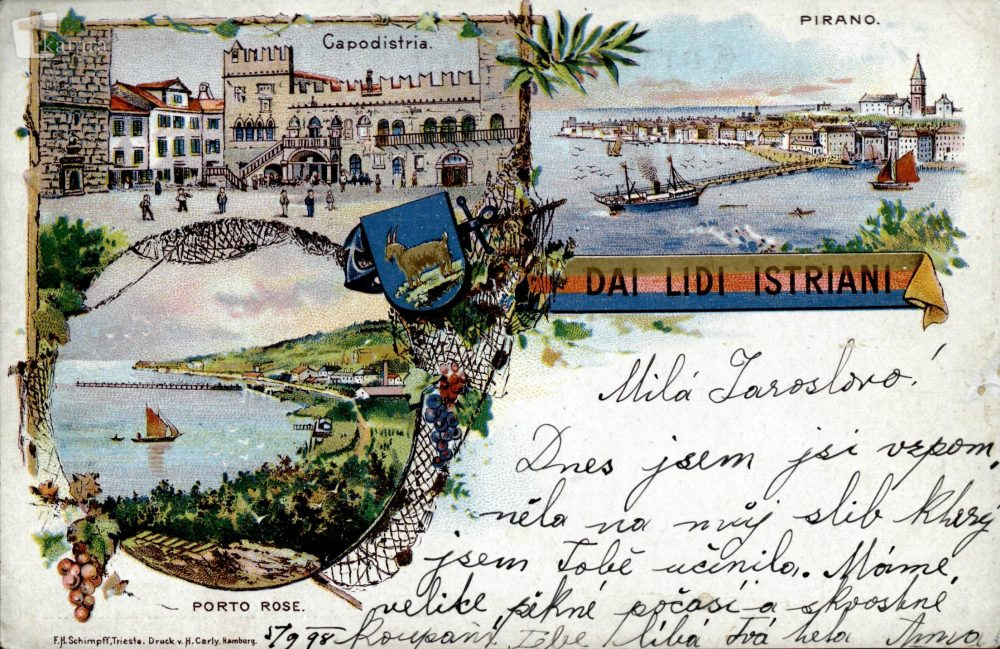 Kamra
Capodistria.
PIRANO.
DAI LIDI ISTRIANI
Milá Jaroslavo!
Dnes jsem jsi vzpom,
něla na můj slib kterej
jsem Tobě učinila. Máme
velice pěkné počasí a skvostné
koupaní, Tebe líbá Tvá teta Anna.
5/9 98
PORTO ROSE.
F.H. Schimpff, Trieste. Druck v. H. Carly, Hamburg.